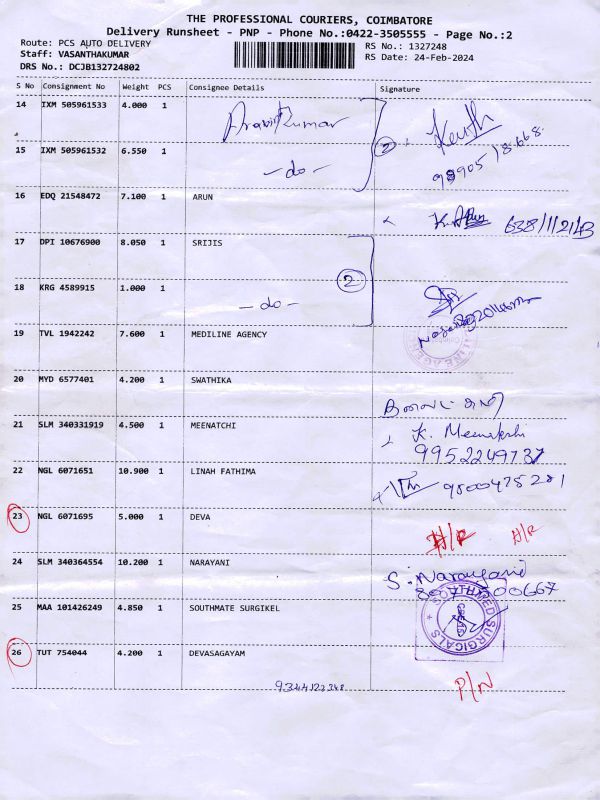 THE PROFESSIONAL COURIERS, COIMBATORE
Delivery Runsheet - PNP - Phone No.:0422-3505555 - Page No.:2
Route: PCS AUTO DELIVERY
RS No.: 1327248
Staff: VASANTHAKUMAR
RS Date: 24-Feb-2024
DRS No.: DCJB132724802
S No Consignment No Weight PCS Consignee Details Signature
14 IXM 505961533 4.000 1 Pravin Kumar
2
15 IXM 505961532 6.550 1 -do-
16 EDQ 21548472 7.100 1 ARUN
17 DPI 10676900 8.050 1 SRIJIS
2
18 KRG 4589915 1.000 1 -do-
19 TVL 1942242 7.600 1 MEDILINE AGENCY
20 MYD 6577401 4.200 1 SWATHIKA
21 SLM 340331919 4.500 1 MEENATCHI K. Meenakshi
9952249737
22 NGL 6071651 10.900 1 LINAH FATHIMA 9500475281
23 NGL 6071695 5.000 1 DEVA D/R
24 SLM 340364554 10.200 1 NARAYANI S. Narayani
25 MAA 101426249 4.850 1 SOUTHMATE SURGIKEL
SURGICALS
26 TUT 754044 4.200 1 DEVASAGAYAM P/N
9344122348